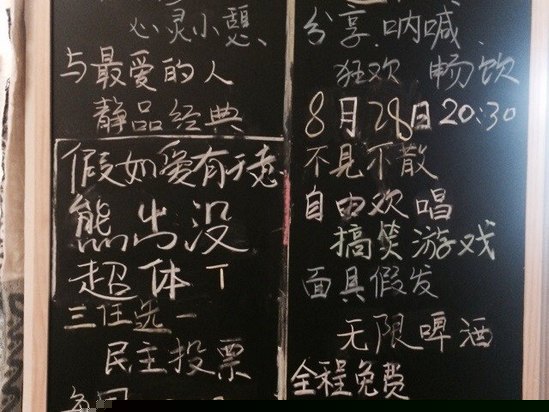 心灵小憩、
与最爱的人
静品经典
假如爱有天意
熊出没
超体
三任选一
民主投票
每周
分享.呐喊
狂欢 畅饮
8月28日20:30
不见不散
自由欢唱
搞笑游戏
面具假发
无限啤酒
全程免费